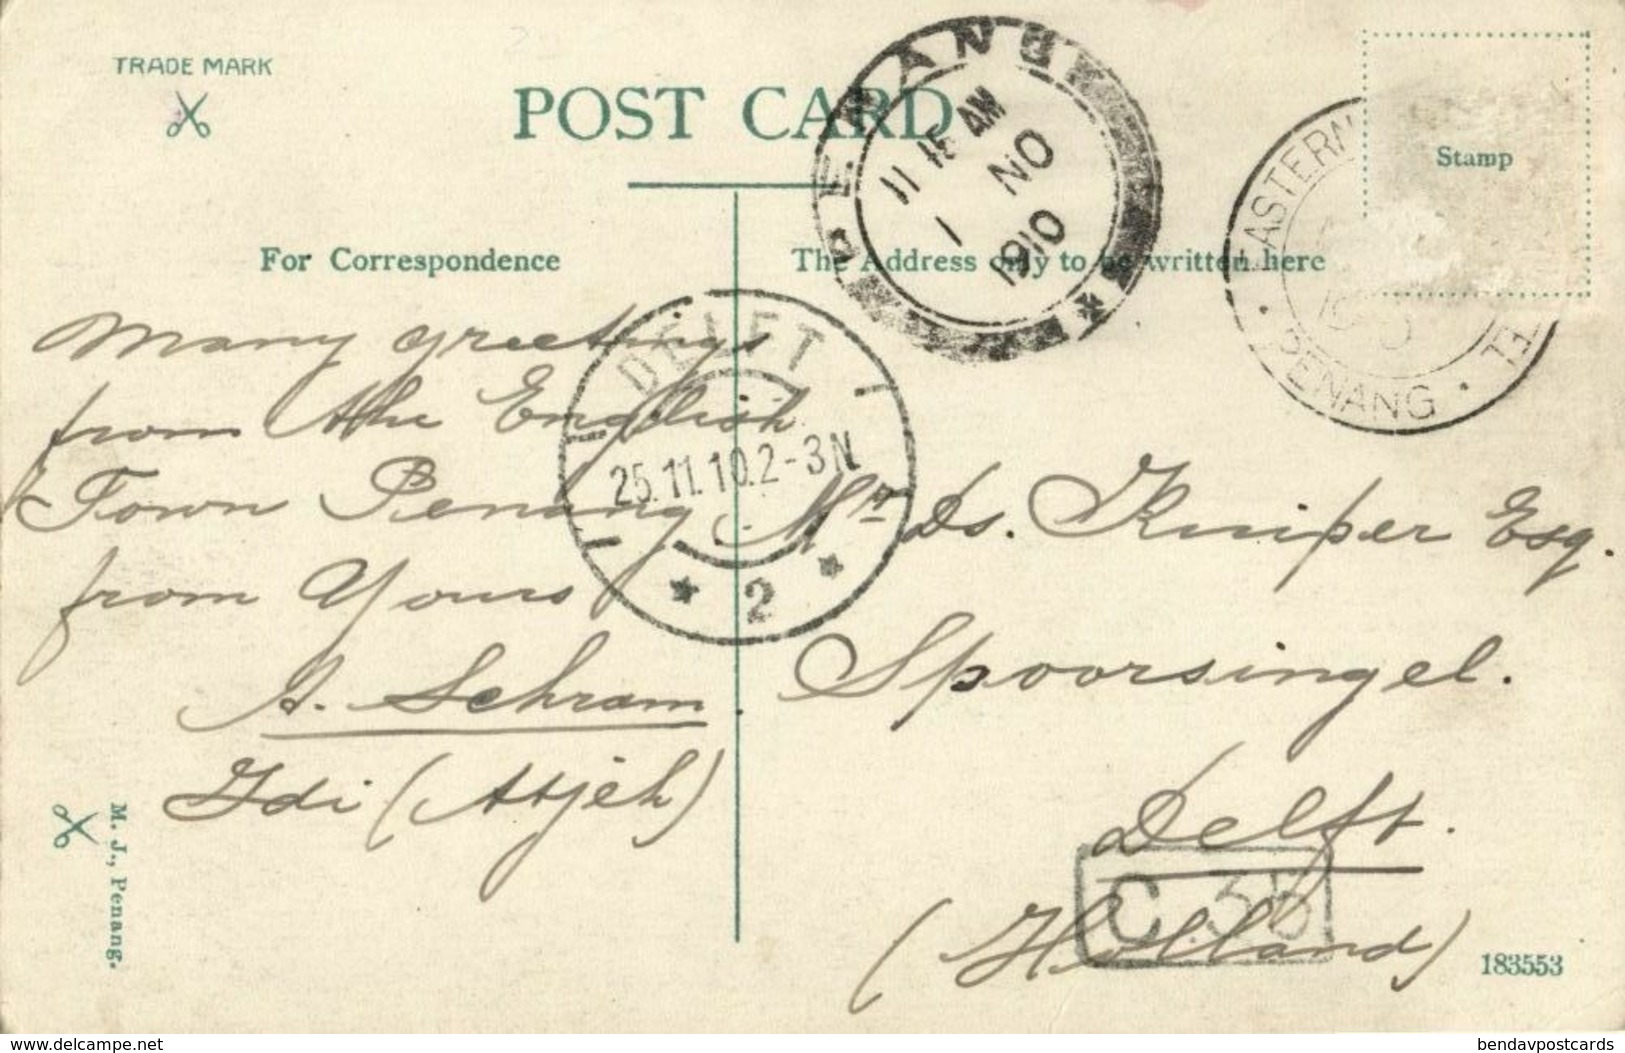 TRADE MARK
POST CARD
Stamp
For Correspondence
The Address only to be written here
PENANG
11 15 AM
1 NO
1910
EASTERN
PENANG
DELFT
25.11.10.2-3N
2
many greetings
from the English
Town Penang
from Yours
A. Schram.
Idi (Atjeh)
Mr Ds. Kuiper Esq.
Spoorsingel.
Delft.
(Holland)
C.35
M. J., Penang.
183553
www.delcampe.net
bendavpostcards